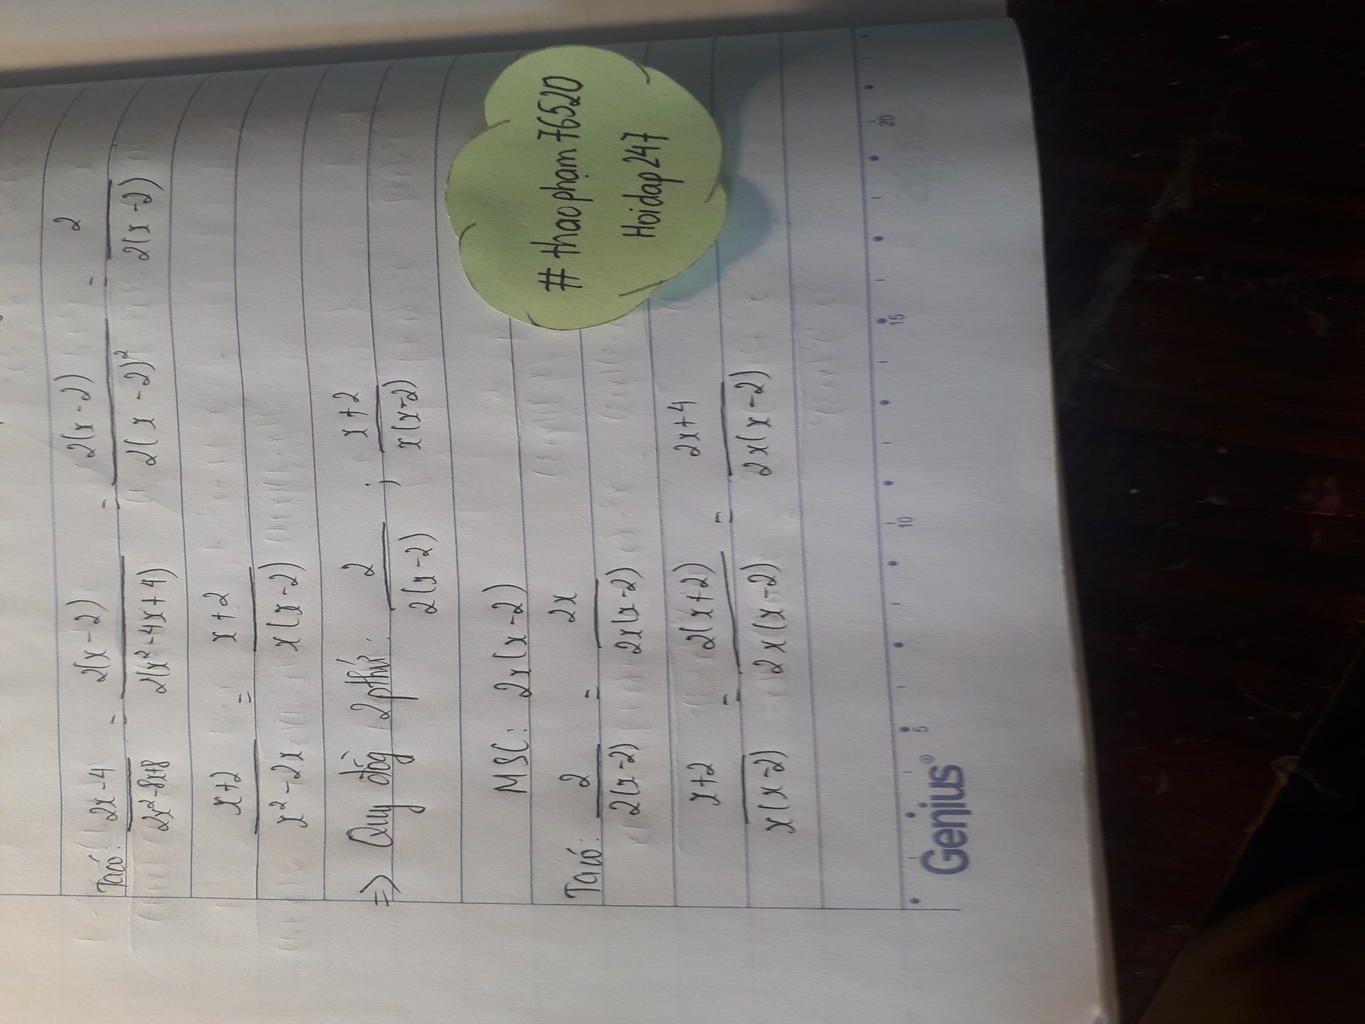 Ta có: 2x-4 / 2x²-8x+8 = 2(x-2) / 2(x²-4x+4) = 2(x-2) / 2(x-2)² = 2 / 2(x-2)
x+2 / x²-2x = x+2 / x(x-2)
=> Quy đồg 2 pthứ: 2 / 2(x-2) ; x+2 / x(x-2)
MSC: 2x(x-2)
Ta có: 2 / 2(x-2) = 2x / 2x(x-2)
x+2 / x(x-2) = 2(x+2) / 2x(x-2) = 2x+4 / 2x(x-2)
# thaophạm76520
Hoidap247
Genius®
5 10 15 20